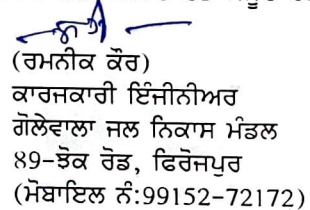 (ਰਮਨੀਕ ਕੌਰ)
ਕਾਰਜਕਾਰੀ ਇੰਜੀਨੀਅਰ
ਗੋਲੇਵਾਲਾ ਜਲ ਨਿਕਾਸ ਮੰਡਲ
89-ਝੋਕ ਰੋਡ, ਫਿਰੋਜਪੁਰ
(ਮੋਬਾਇਲ ਨੰ:99152-72172)